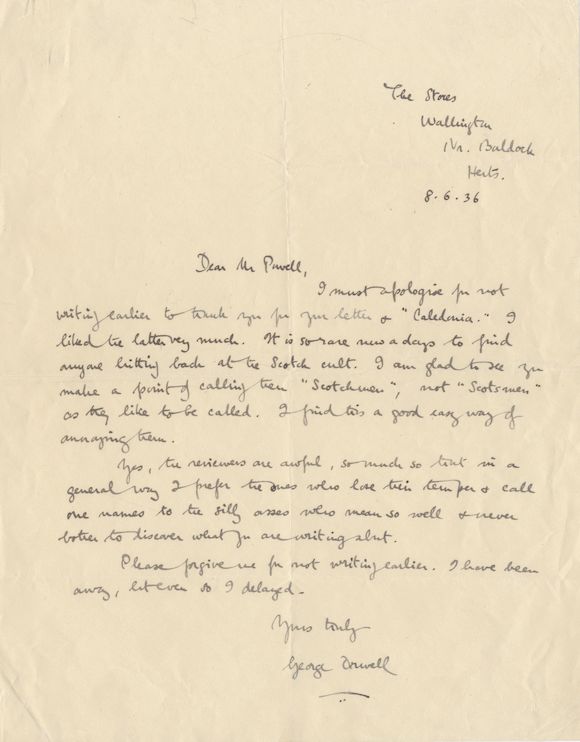 The Stores
Wallington
Nr. Baldock
Herts.
8.6.36
Dear Mr Powell,
I must apologise for not
writing earlier to thank you for your letter & "Caledonia." I
liked the latter very much. It is so rare nowadays to find
anyone hitting back at the Scotch cult. I am glad to see you
make a point of calling them "Scotchmen", not "Scotsmen"
as they like to be called. I find this a good easy way of
annoying them.
Yes, the reviewers are awful, so much so that in a
general way I prefer the ones who lose their temper & call
one names to the silly asses who mean so well & never
bother to discover what you are writing about.
Please forgive me for not writing earlier. I have been
away, but even so I delayed.
Yours truly
George Orwell